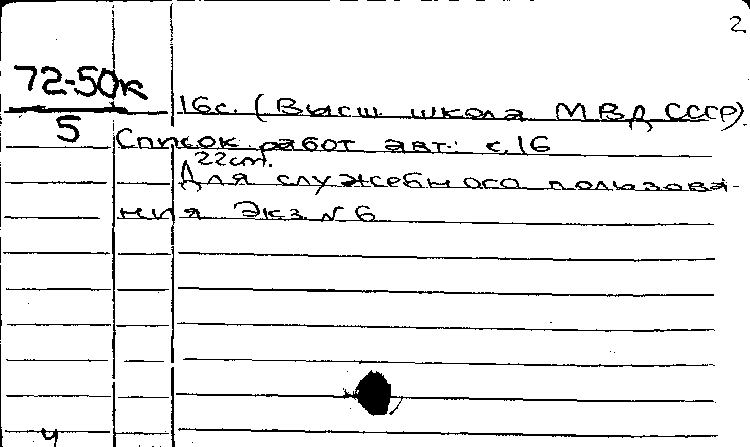 2
72-50к
5
16с. (Высш школа МВД СССР).
Список работ авт.: с.16
22cm.
Для служебного пользова-
ния Экз N 6
ч